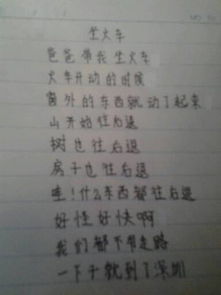 坐火车
爸爸带我坐火车
火车开动的时候
窗外的东西就动了起来
山开始往后退
树也往后退
房子也往后退
哇！什么东西都往后退
好怪好快啊
我们都不用走路
一下子就到了深圳